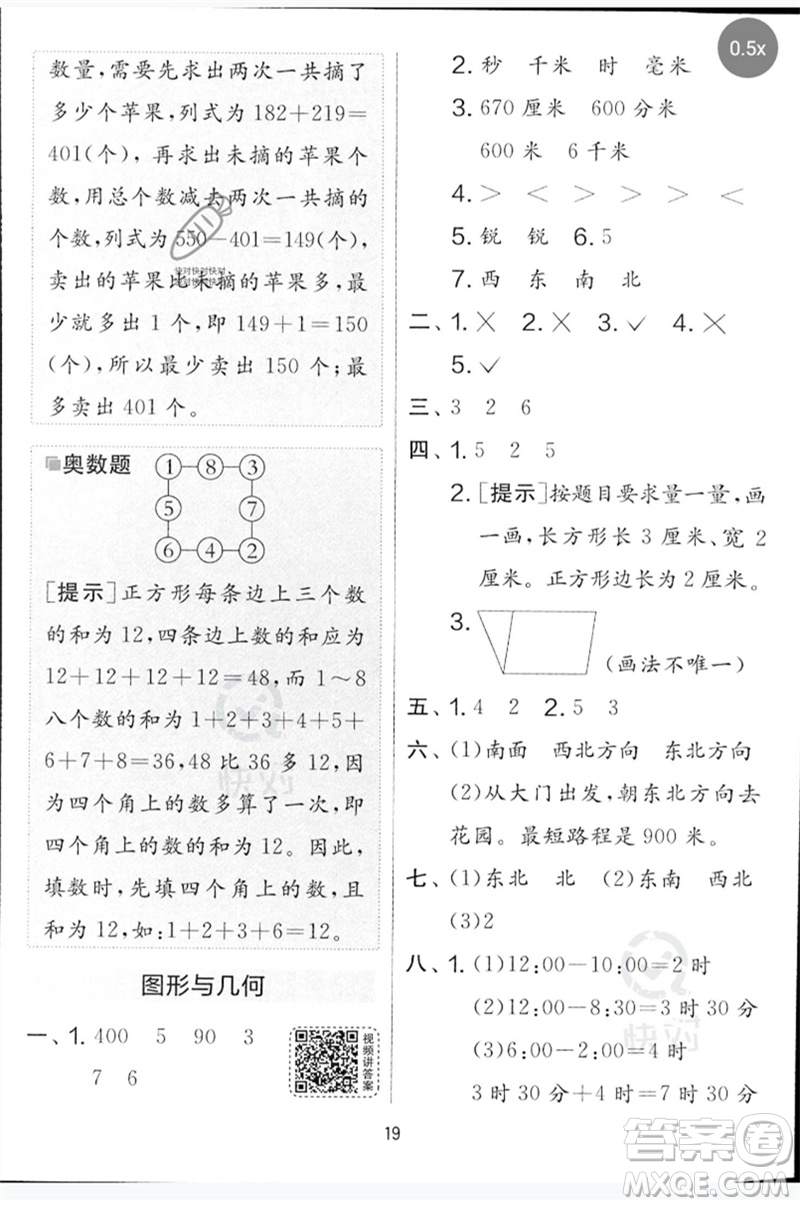 数量，需要先求出两次一共摘了
多少个苹果，列式为 182+219=
401(个)，再求出未摘的苹果个
数，用总个数减去两次一共摘的
个数，列式为 550-401=149(个)，
卖出的苹果比未摘的苹果多，最
少就多出 1 个，即 149+1=150
(个)，所以最少卖出 150 个；最
多卖出 401 个。
奥数题
1 8 3
5 7
6 4 2
[提示]正方形每条边上三个数
的和为 12，四条边上数的和应为
12+12+12+12=48，而 1～8
八个数的和为 1+2+3+4+5+
6+7+8=36，48 比 36 多 12，因
为四个角上的数多算了一次，即
四个角上的数的和为 12。因此，
填数时，先填四个角上的数，且和
为 12，如：1+2+3+6=12。
图形与几何
一、1. 400 5 90 3
7 6
视频讲答案
2. 秒 千米 时 毫米
3. 670 厘米 600 分米
600 米 6 千米
4. > < > > > <
5. 锐 锐 6. 5
7. 西 东 南 北
二、1. × 2. × 3. ✓ 4. ×
5. ✓
三、3 2 6
四、1. 5 2 5
2. [提示]按题目要求量一量，画
一画，长方形长 3 厘米、宽 2
厘米。正方形边长为 2 厘米。
3.
(画法不唯一)
五、1. 4 2 2. 5 3
六、(1)南面 西北方向 东北方向
(2)从大门出发，朝东北方向去
花园。最短路程是 900 米。
七、(1)东北 北 (2)东南 西北
(3)2
八、1. (1)12:00-10:00=2 时
(2)12:00-8:30=3 时 30 分
(3)6:00-2:00=4 时
3 时 30 分+4 时=7 时 30 分
19
0.5x
快对快对快对
快对
快对
答案圈
MXQE.COM